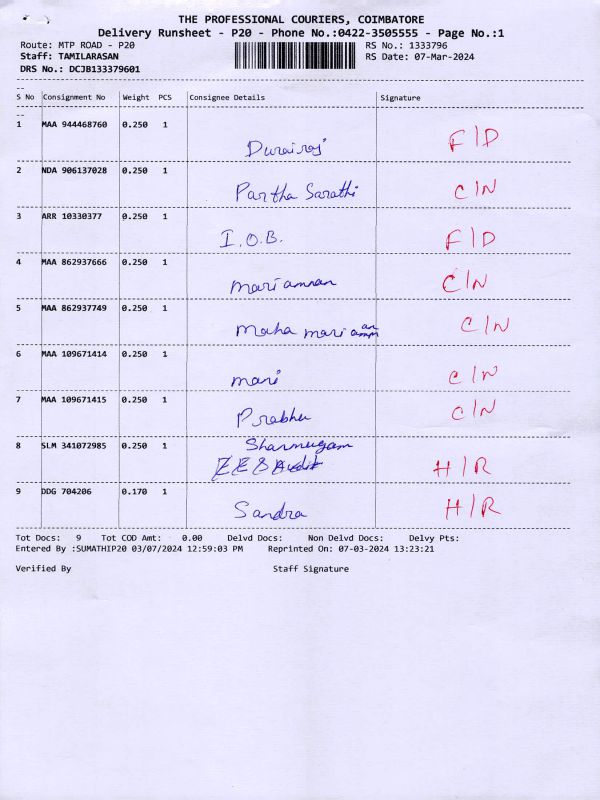 THE PROFESSIONAL COURIERS, COIMBATORE
Delivery Runsheet - P20 - Phone No.:0422-3505555 - Page No.:1
Route: MTP ROAD - P20 RS No.: 1333796
Staff: TAMILARASAN RS Date: 07-Mar-2024
DRS No.: DCJB133379601
S No Consignment No Weight PCS Consignee Details Signature
1 MAA 944468760 0.250 1
Durairoj F/D
2 NDA 906137028 0.250 1
Partha Sarathi C/N
3 ARR 10330377 0.250 1
I.O.B. F/D
4 MAA 862937666 0.250 1
mariamman C/N
5 MAA 862937749 0.250 1
maha mari C/N
6 MAA 109671414 0.250 1
mari C/N
7 MAA 109671415 0.250 1
Prabhu C/N
8 SLM 341072985 0.250 1 Shanmugam
H/R
9 DDG 704206 0.170 1
Sandra H/R
Tot Docs: 9 Tot COD Amt: 0.00 Delvd Docs: Non Delvd Docs: Delvy Pts:
Entered By :SUMATHIP20 03/07/2024 12:59:03 PM Reprinted On: 07-03-2024 13:23:21
Verified By Staff Signature